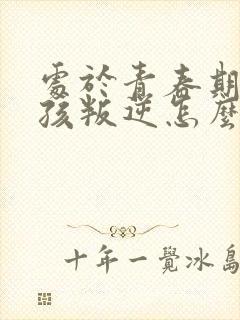 處於青春期
孩叛逆怎麼
十年一覺冰島